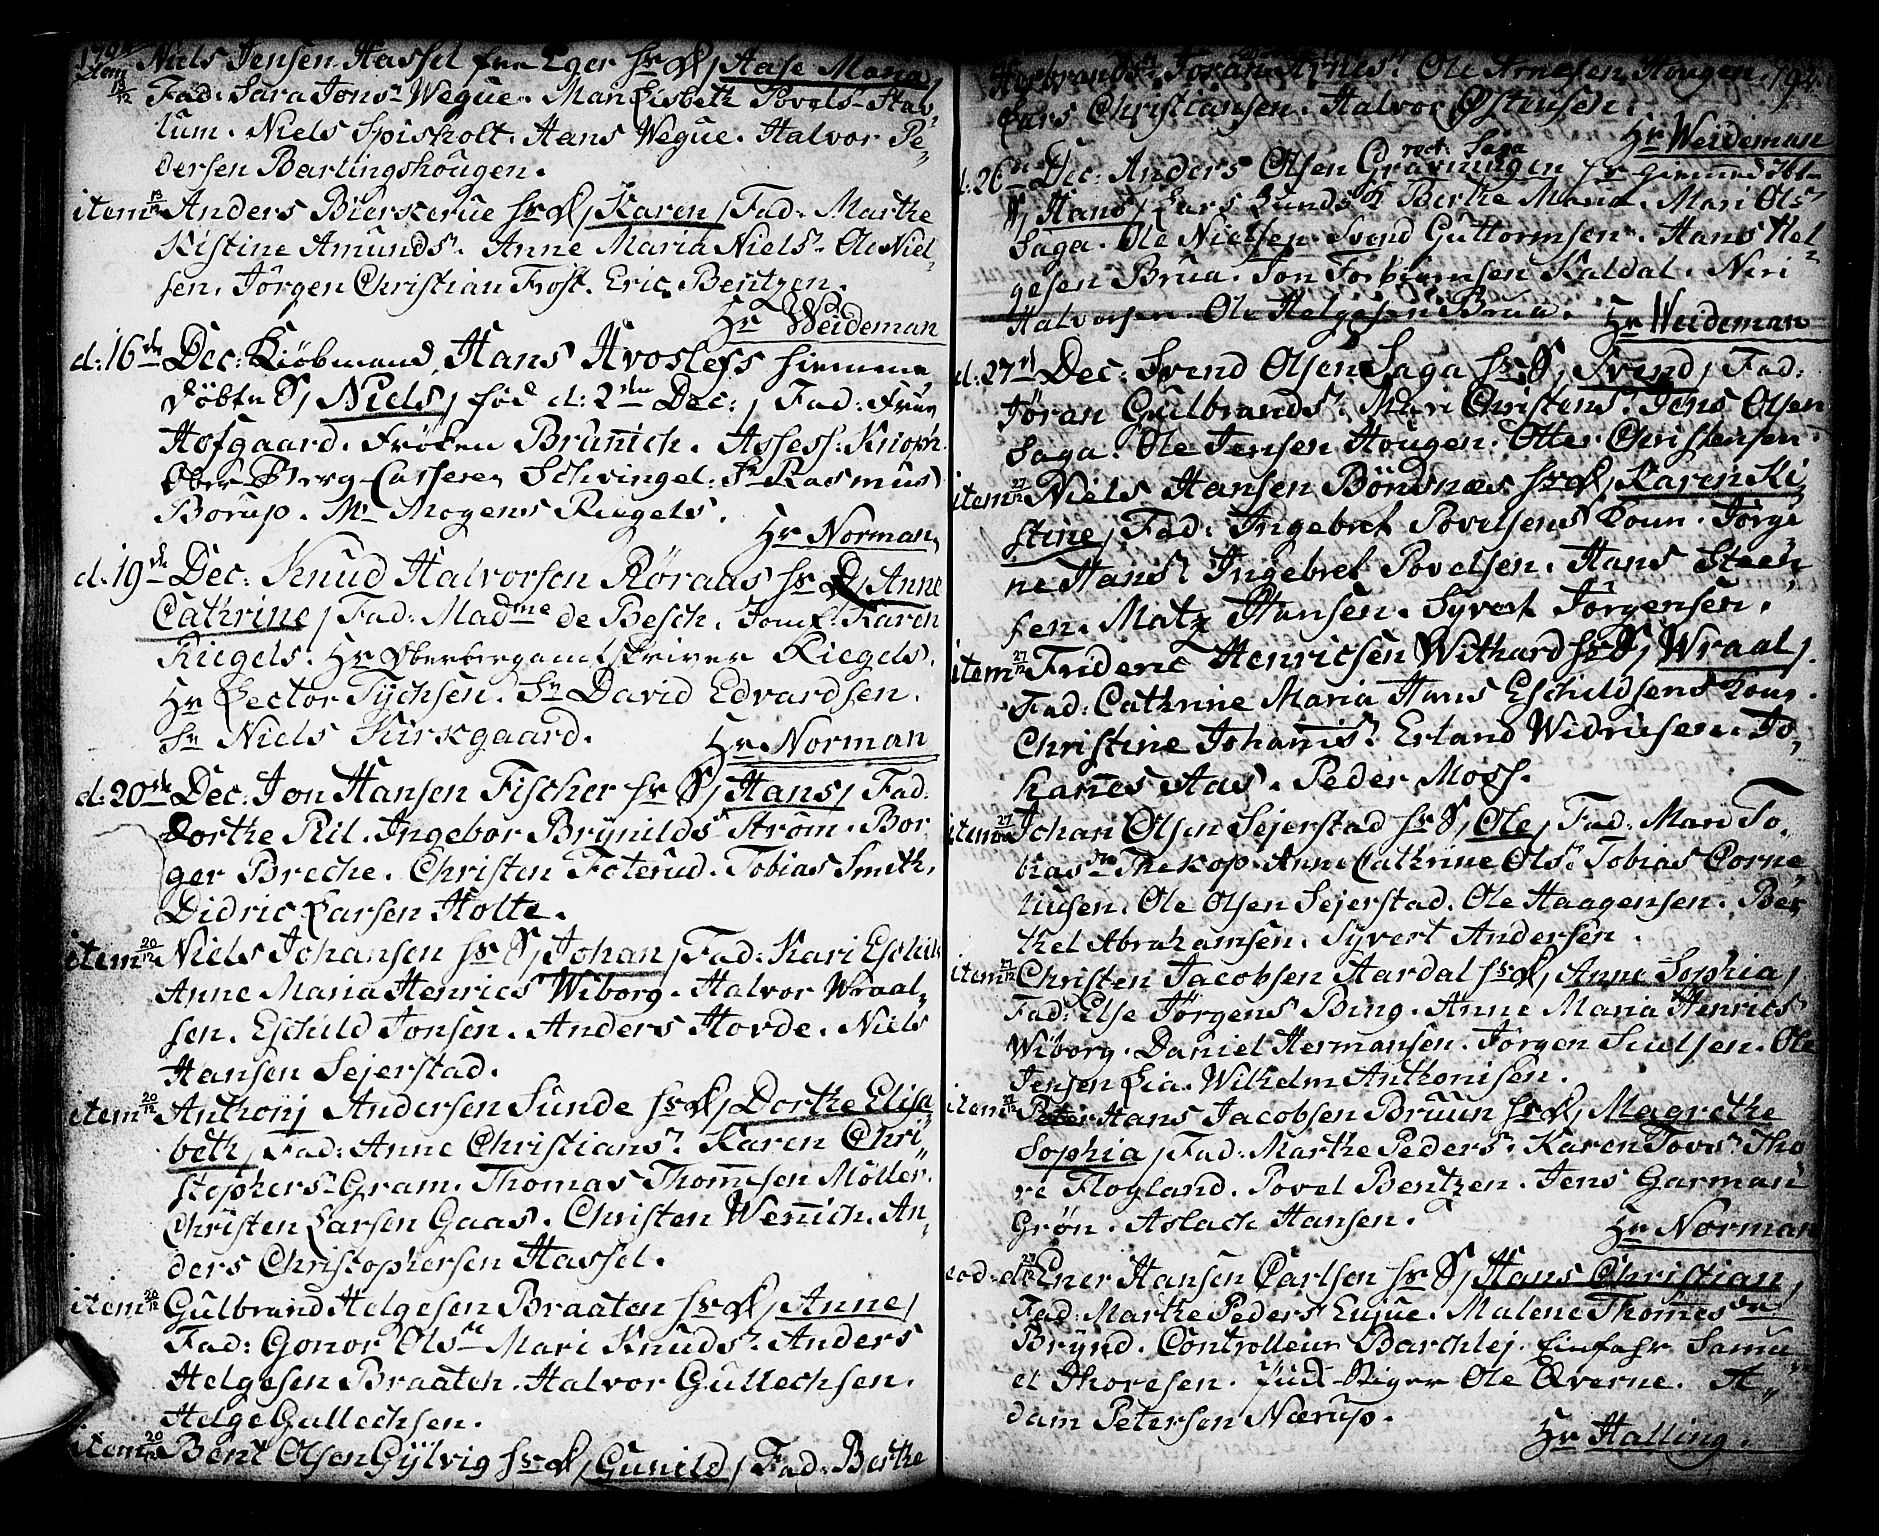 Niels Jensen Hassel fra Eger hr D, Aase Maria,
13/12 Fad: Sara Jons n Wegue. Mari Lisbeth Povels Stal,,
lum. Niels Spisholt. Hans Wegue. Halvor Pe,,
dersen Barlingshougen.
item 13/12 Anders Bierkerue hr D, Karen, Fad: Marthe
Kistine Amunds n. Anne Maria Niels n. Ole Niel,,
sen. Jörgen Christian Frost. Eric Bentzen.
Hr Weideman
d: 16de Dec: Kiöbmand Hans Hvoslefs hiemme
döbte S, Niels, fød d: 2den Dec:, Fad: Frue
Hofgaard. Fröken Brünich. Assess: Knoph.
Ober Berg-Casserer Schvingel: Sr Rasmus
Borup. Mr Mogens Riegels.
Hr Norman
d. 19de Dec: Knud Halvorsen Röraas hr D, Anne
Cathrine, Fad: Madme de Besch. Jomf: Karen
Riegels. Hr Oberbergamtskriver Riegels.
Hr Lector Tychsen. Sr David Edvardsen.
Sr Niels Kirkgaard.
Hr Norman
d: 20de Dec: Jon Hansen Fischer hr S, Hans, Fad:
Dorthe Pil. Ingebor Brynilds Ström. Bor,,
ger Breche. Christen Foterud. Tobias Smith.
Didric Larsen Holte.
item 20/12 Niels Johansen hr S, Johan, Fad: Kari Eschilds
Anne Maria Henrics Wiborg. Halvor Wraal,,
sen. Eschild Jonsen. Anders Hovde. Niels
Hansen Sejerstad.
item 20/12 Anthonj Andersen Sunde hr D, Dorthe Elisa,,
beth, Fad: Anne Christians n. Karen Chri,,
stophers n Gram. Thomas Thomesen Möller.
Christen Larsen Gaas. Christen Wennich. An,,
ders Christophersen Hassel.
item 20/12 Gulbrand Helgesen Braaten hr D, Anne,
Fad: Gonor Ols n Mari Knuds n. Anders
Helgesen Braaten. Halvor Gullechsen.
Helge Gullechsen.
item 20/12 Bent Olsen Gylvig hr D, Gunild, Fad: Berthe
Herbrands n. Jöran Hynes n. Ole Arnesen Hougen.
Lars Christiansen. Halvor Østensen.
Hr Weideman
d: 26n Dec: Anders Olsen Gravningen rect: Saga hr hiemmedöbte
S, Hans, Lars Lunds K Berthe Maria. Mari Ols n
Saga. Ole Nielsen. Svend Guttormsen. Hans Hel,,
gesen Brua. Jon Torbiörnsen Kaldal. Neri
Halvorsen. Ole Helgesen Brua.
Hr Weideman
d: 27n Dec: Svend Olsen Saga hr S, Svend, Fad:
Jöran Gulbrands n. Mari Christens n. Jens Olsen
Saga. Ole Jensen Hougen. Otter Christensen.
item 27/12 Niels Hansen Böndsnæs hr D, Karen Ki,,
stine, Fad: Ingebret Povelsens Kone. Jörgi,,
ne Hans n. Ingebret Povelsen. Hans Steen,,
sen. Matz Hansen. Syvert Jörgensen.
item 27/12 Frideric Henricsen Withard hr S, Wraal,
Fad: Cathrine Maria Hans Eschildsens Kone.
Christine Johannis n. Erland Widricsen. Jo,,
hannes Aas. Peder Moss.
item 27/12 Johan Olsen Sejerstad hr S, Ole, Fad: Mari To,,
bias dn Thekop. Anne Cathrine Ols n. Tobias Corne,,
liusen. Ole Olsen Sejerstad. Ole Haagensen. Ber,,
thel Abrahamsen. Syvert Andersen.
item 27/12 Christen Jacobsen Aardal hr D, Anne Sophia,
Fad: Else Jörgens Bing. Anne Maria Henrics
Wiborg. Daniel Hermansen. Jörgen Siulsen. Ole
Jensen Lia. Wilhelm Anthonisen.
item 27/12 Hans Jacobsen Bruun hr D, Magrethe
Sophia, Fad: Marthe Peders n. Karen Tovs n. Tho,,
re Flogland. Povel Bentzen. Jens Garman
Grøn. Aslach Hansen.
Hr Norman
eod: d: 27/12 Ener Hansen Carlsen hr S, Hans Christian,
Fad: Marthe Peders Eujue. Malene Thomes dn
Brynd. Controlleur Barchlej. Einfahr Samu,,
el Thoresen. Ole Qverne. A,,
dam Petersen Nærup.
Hr Halling.